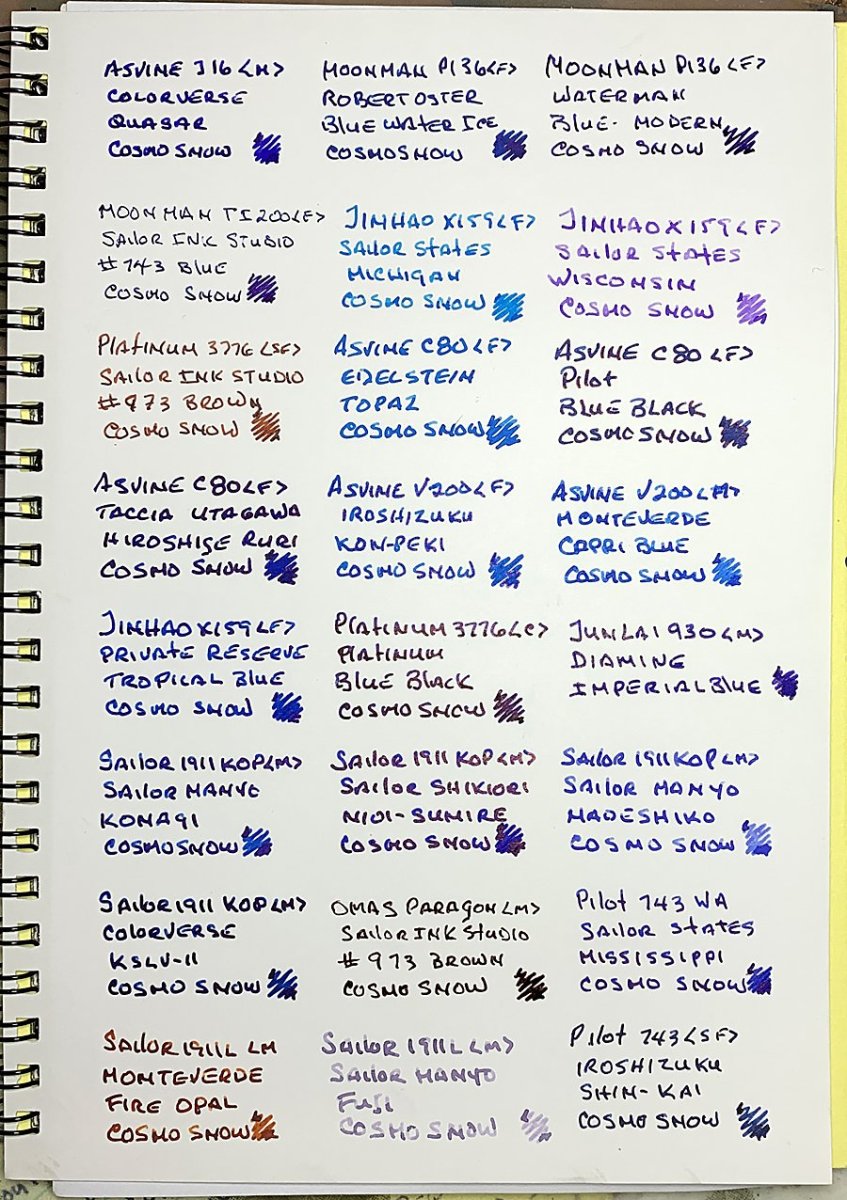 ASVINE J16 <M>
COLORVERSE
QUASAR
COSMO SNOW
MOONMAN P136 <F>
ROBERT OSTER
BLUE WATER ICE
COSMO SNOW
MOONMAN P136 <F>
WATERMAN
BLUE- MODERN
COSMO SNOW
MOONMAN TI200 <F>
SAILOR INK STUDIO
#743 BLUE
COSMO SNOW
JINHAO X159 <F>
SAILOR STATES
MICHIGAN
COSMO SNOW
JINHAO X159 <F>
SAILOR STATES
WISCONSIN
COSMO SNOW
PLATINUM 3776 <SF>
SAILOR INK STUDIO
#973 BROWN
COSMO SNOW
ASVINE C80 <F>
EDELSTEIN
TOPAZ
COSMO SNOW
ASVINE C80 <F>
PILOT
BLUE BLACK
COSMO SNOW
ASVINE C80 <F>
TACCIA UTAGAWA
HIROSHIGE RURI
COSMO SNOW
ASVINE V200 <F>
IROSHIZUKU
KON-PEKI
COSMO SNOW
ASVINE V200 <M>
MONTEVERDE
CAPRI BLUE
COSMO SNOW
JINHAO X159 <F>
PRIVATE RESERVE
TROPICAL BLUE
COSMO SNOW
PLATINUM 3776 <C>
PLATINUM
BLUE BLACK
COSMO SNOW
JUNLAI 930 <M>
DIAMINE
IMPERIAL BLUE
SAILOR 1911 KOP <M>
SAILOR MANYO
KONAGI
COSMO SNOW
SAILOR 1911 KOP <M>
SAILOR SHIKIORI
NIOI-SUMIRE
COSMO SNOW
SAILOR 1911 KOP <M>
SAILOR MANYO
NADESHIKO
COSMO SNOW
SAILOR 1911 KOP <M>
COLORVERSE
KSLV-II
COSMO SNOW
OMAS PARAGON <M>
SAILOR INK STUDIO
#973 BROWN
COSMO SNOW
PILOT 743 WA
SAILOR STATES
MISSISSIPPI
COSMO SNOW
SAILOR 1911L LM
MONTEVERDE
FIRE OPAL
COSMO SNOW
SAILOR 1911L <M>
SAILOR MANYO
FUJI
COSMO SNOW
PILOT 743 <SF>
IROSHIZUKU
SHIN-KAI
COSMO SNOW